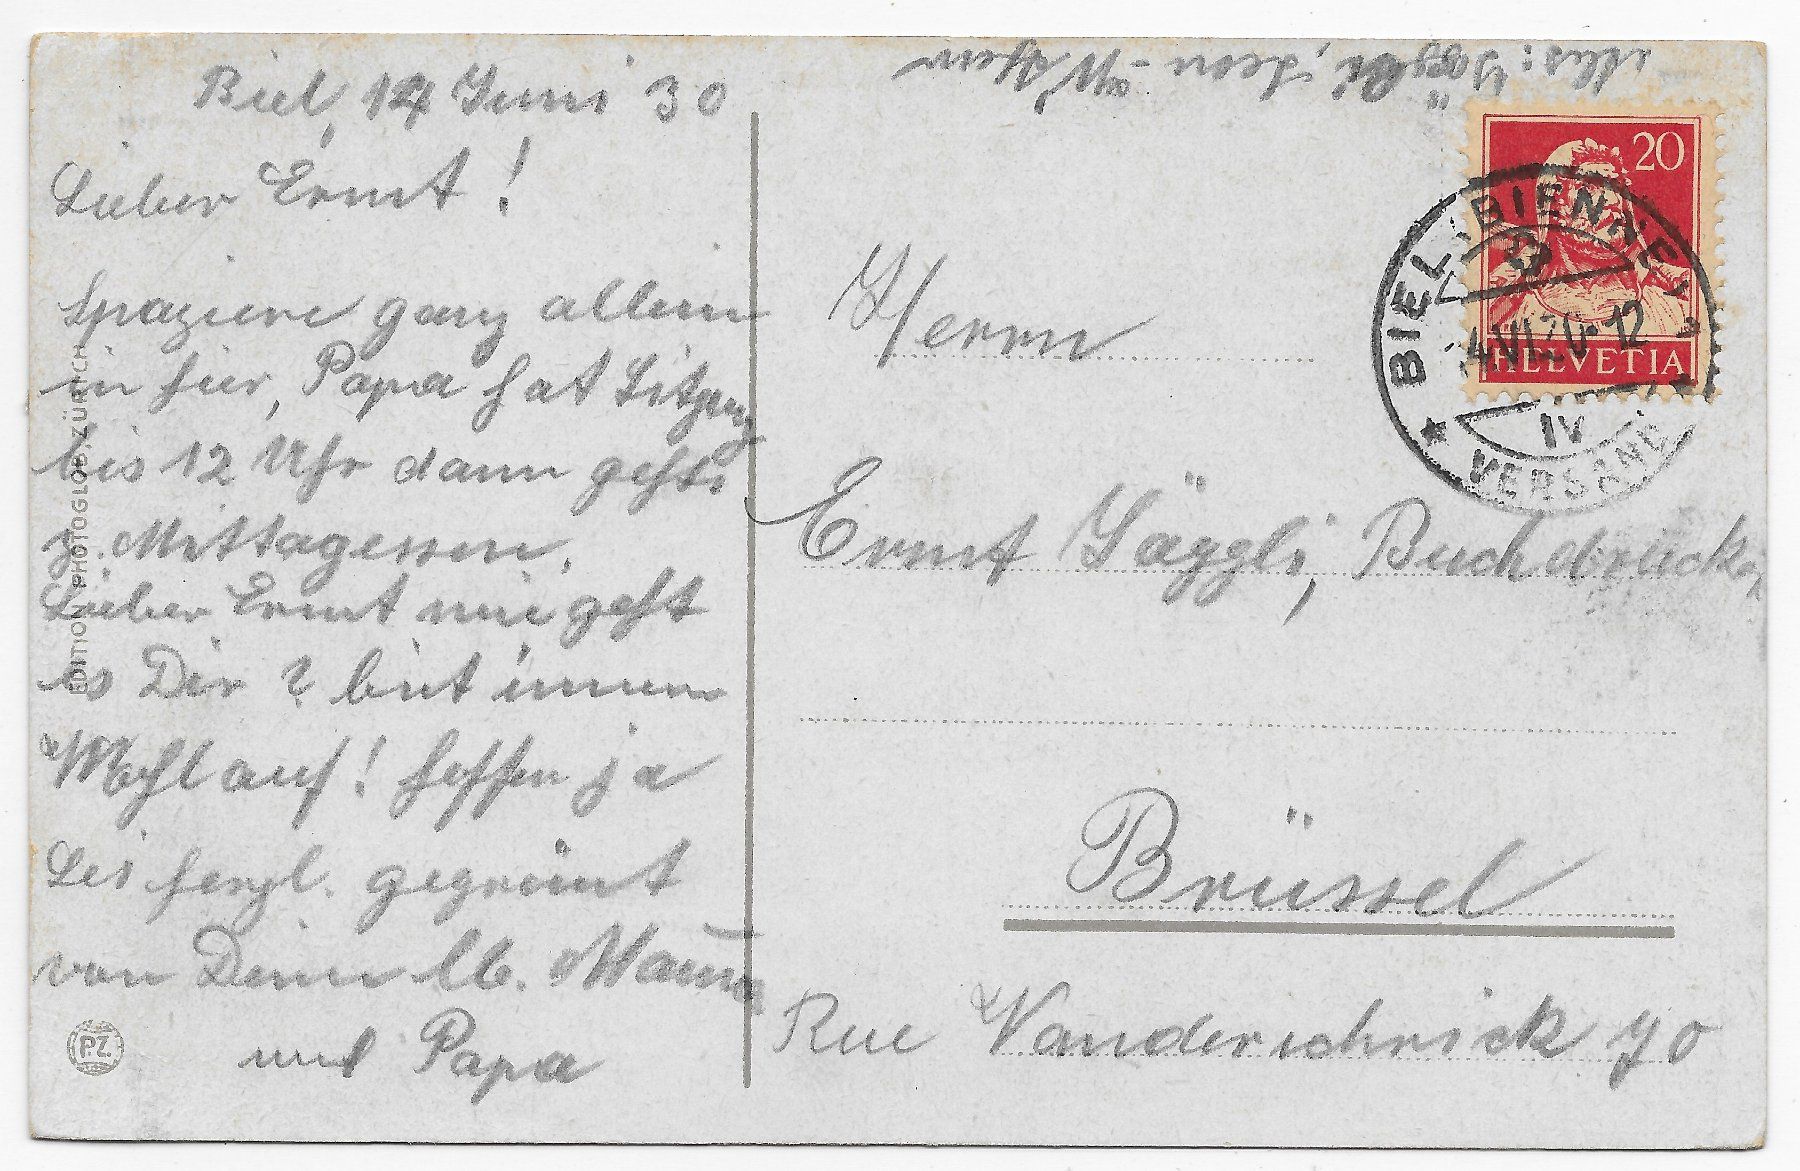 Biel, 14 Juni 30
Lieber Ernst!
Spaziere ganz allein
in hier, Papa hat Sitzung
bis 12 Uhr dann gehts
z. Mittagessen.
Lieber Ernst wie geht
es Dir? bist immer
Wohl auf! hoffen ja
Sei herzl. gegrüsst
von Deiner lb. Mama
und Papa
EDITION PHOTOGLOB, ZÜRICH
PZ.
20
HELVETIA
BIEL-BIENNE
VI 12
IV
VERSAND
Herrn
Ernst Jäggli, Buchdrucker,
Brüssel
Rue Vanderschrick 70